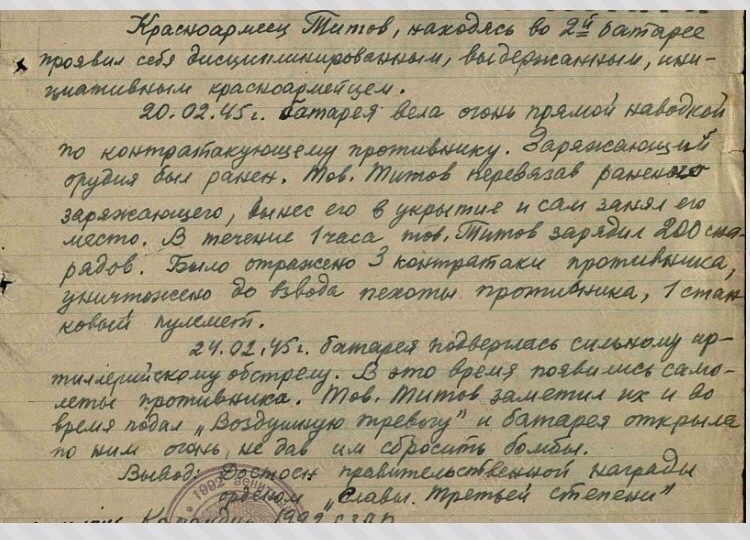 Красноармеец Титов, находясь во 2й батарее
проявил себя дисциплинированным, выдержанным, ини-
циативным красноармейцем.
20.02.45г. батарея вела огонь прямой наводкой
по контратакующему противнику. Заряжающий
орудия был ранен. Тов. Титов перевязав раненого
заряжающего, вынес его в укрытие и сам занял его
место. В течение 1 часа тов. Титов зарядил 200 сна-
рядов. Было отражено 3 контратаки противника,
уничтожено до взвода пехоты противника, 1 стан-
ковый пулемет.
24.02.45г. батарея подверглась сильному ар-
тиллерийскому обстрелу. В это время появились само-
леты противника. Тов. Титов заметил их и во
время подал „Воздушную тревогу" и батарея открыла
по ним огонь, не дав им сбросить бомбы.
Вывод: Достоен правительственной награды
орденом „Славы Третьей степени"
1992 зенит
Командир 1992